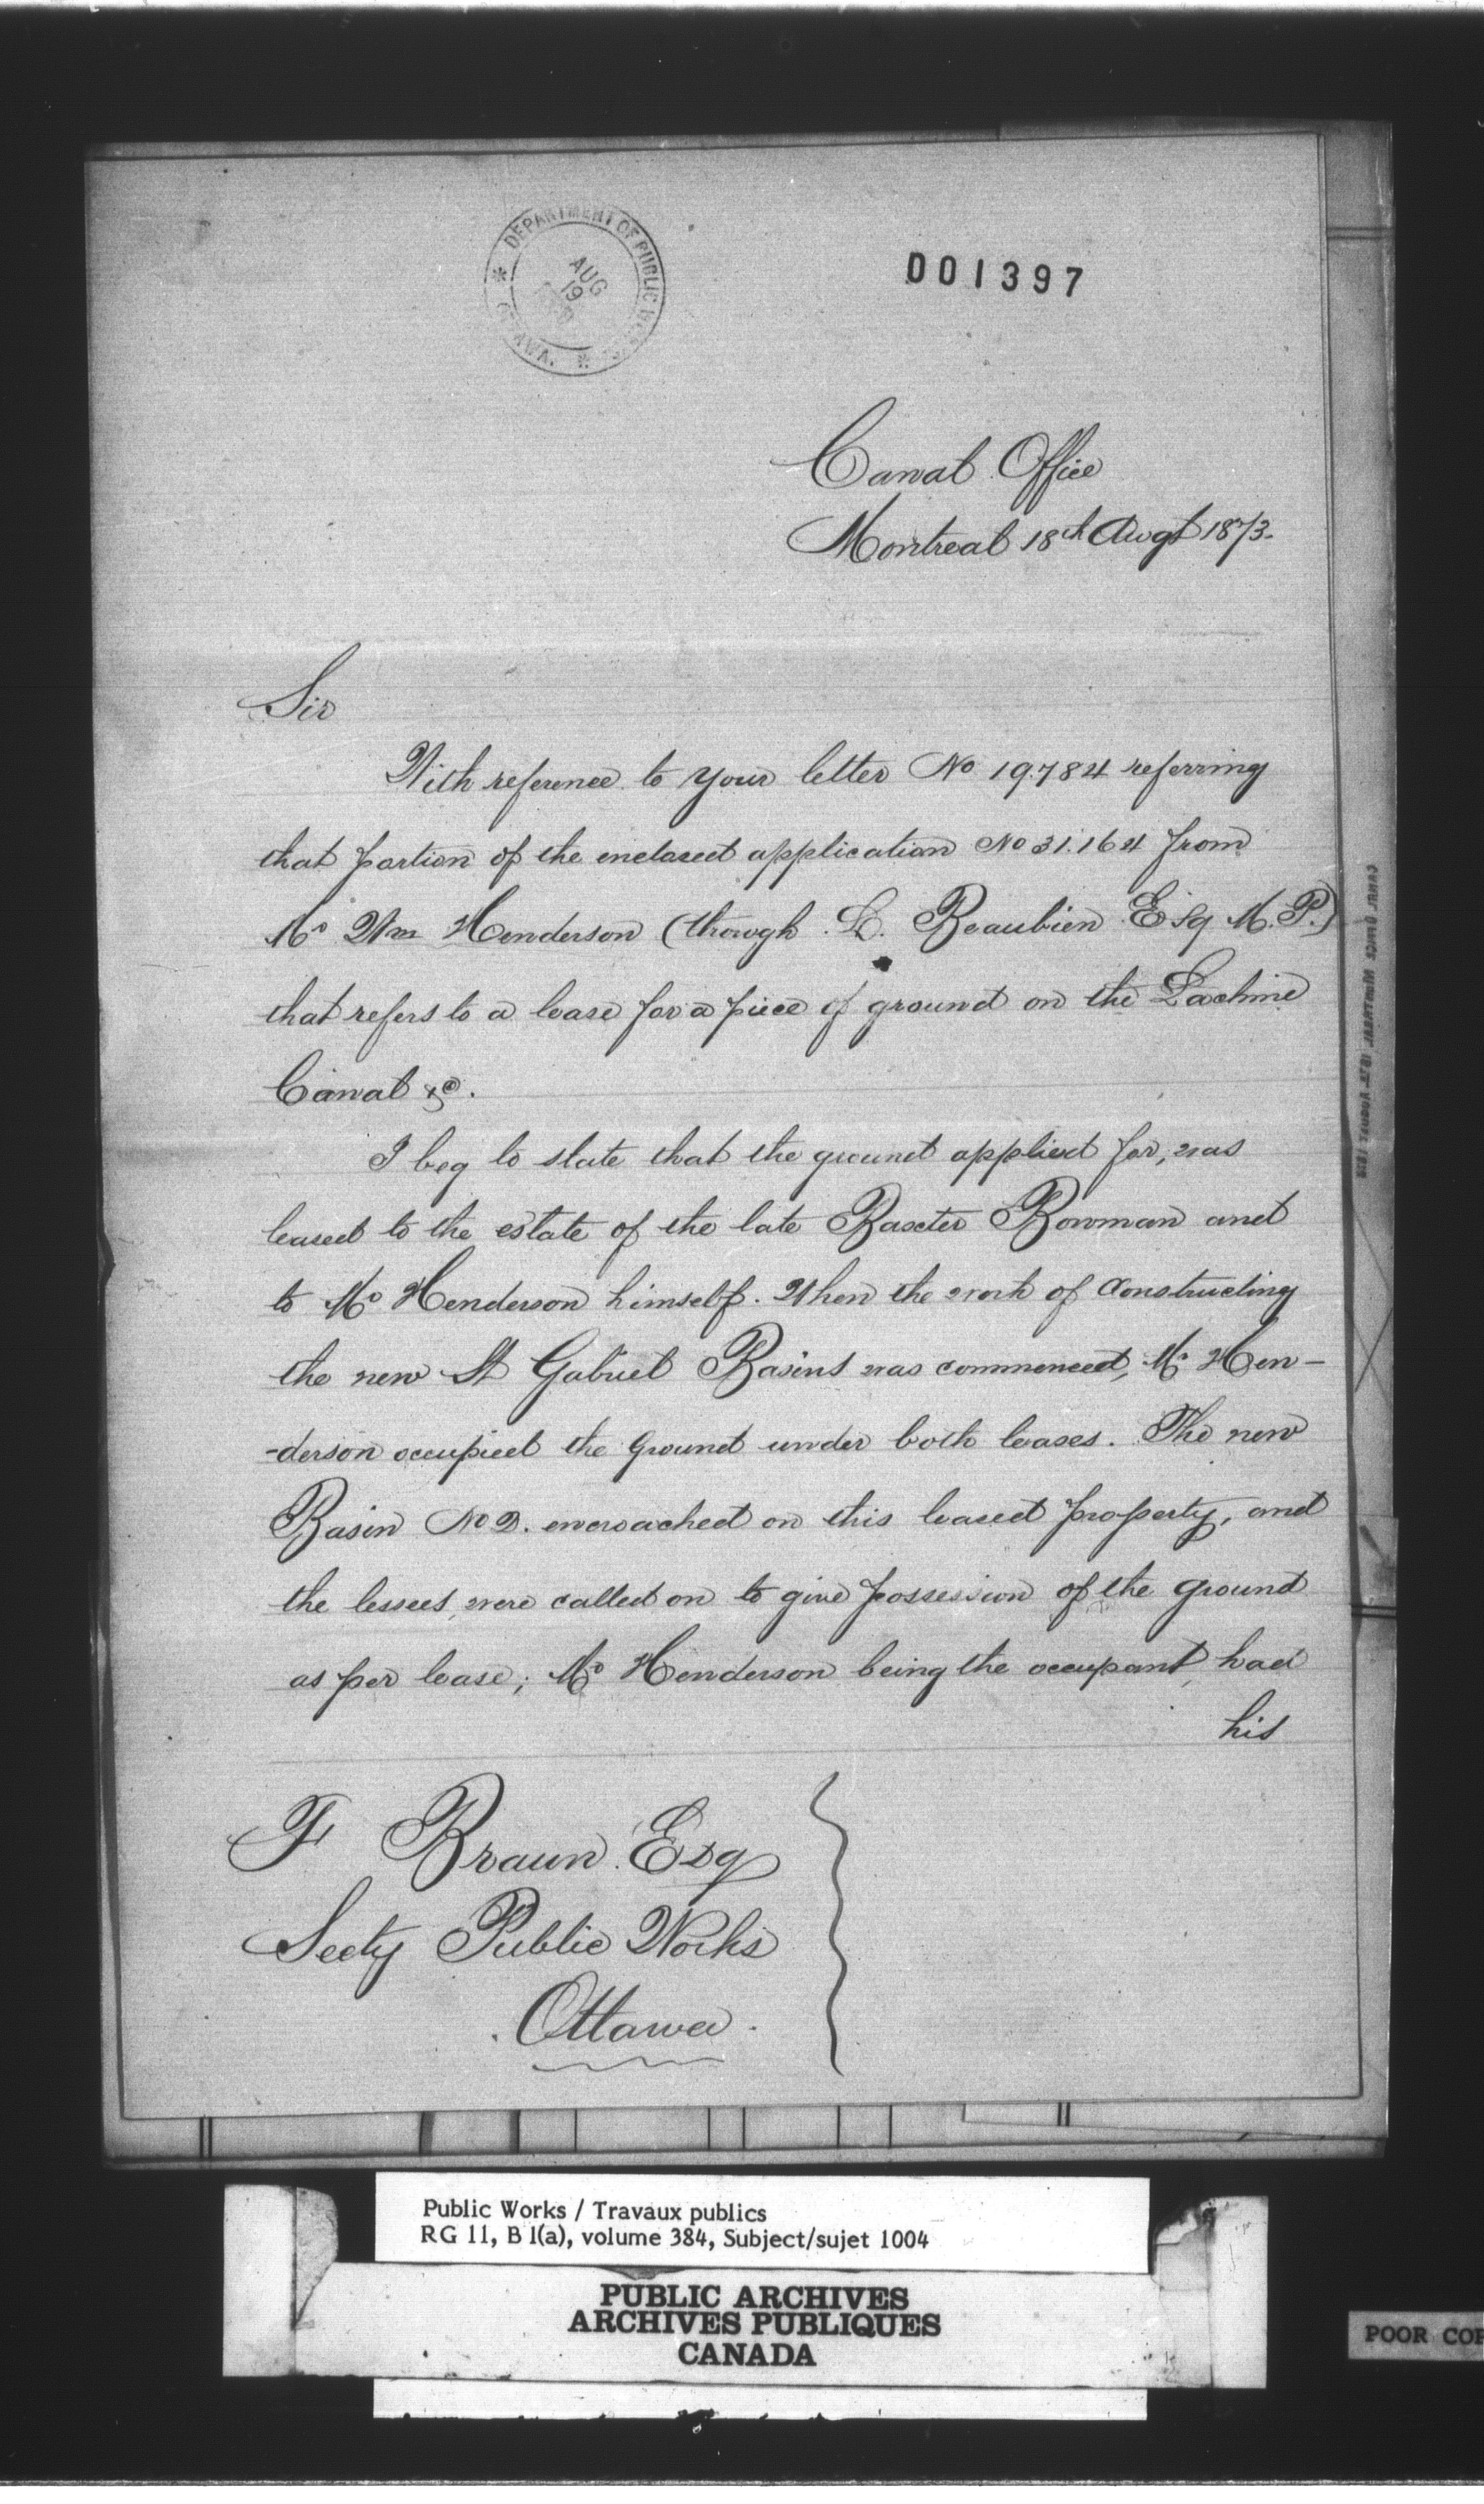 * DEPARTMENT OF PUBLIC WORKS * OTTAWA.
AUG
19
D01397
Canal Office
Montreal 18th Augt 1873.
Sir
With reference to your letter No 19.784 referring
that portion of the enclosed application No 31.164 from
Mr Wm Henderson (through L. Beaubien Esq M.P.)
that refers to a lease for a piece of ground on the Lachine
Canal &c.
I beg to state that the ground applied for, was
leased to the estate of the late Baxter Bowman and
to Mr Henderson himself. When the work of Constructing
the new St Gabriel Basins was commenced, Mr Hen-
-derson occupied the Ground under both leases. The new
Basin No 2. encroached on this leased property, and
the lessees, were called on to give possession of the ground
as per lease; Mr Henderson being the occupant, had
his
F Braun Esq
Secty Public Works
Ottawa.
Public Works / Travaux publics
RG 11, B 1(a), volume 384, Subject/sujet 1004
PUBLIC ARCHIVES
ARCHIVES PUBLIQUES
CANADA
POOR COP